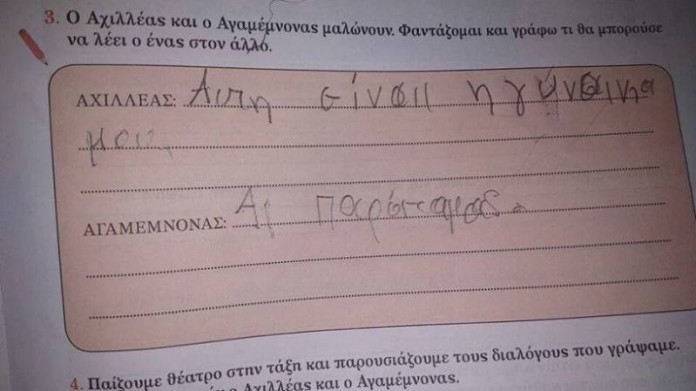 3. Ο Αχιλλέας και ο Αγαμέμνονας μαλώνουν. Φαντάζομαι και γράφω τι θα μπορούσε
να λέει ο ένας στον άλλο.
ΑΧΙΛΛΕΑΣ: Αυτη είναι η γύναικα
μου.
ΑΓΑΜΕΜΝΟΝΑΣ: Αι παράταμας.
4. Παίζουμε θέατρο στην τάξη και παρουσιάζουμε τους διαλόγους που γράψαμε.
Αχιλλέας και ο Αγαμέμνονας.